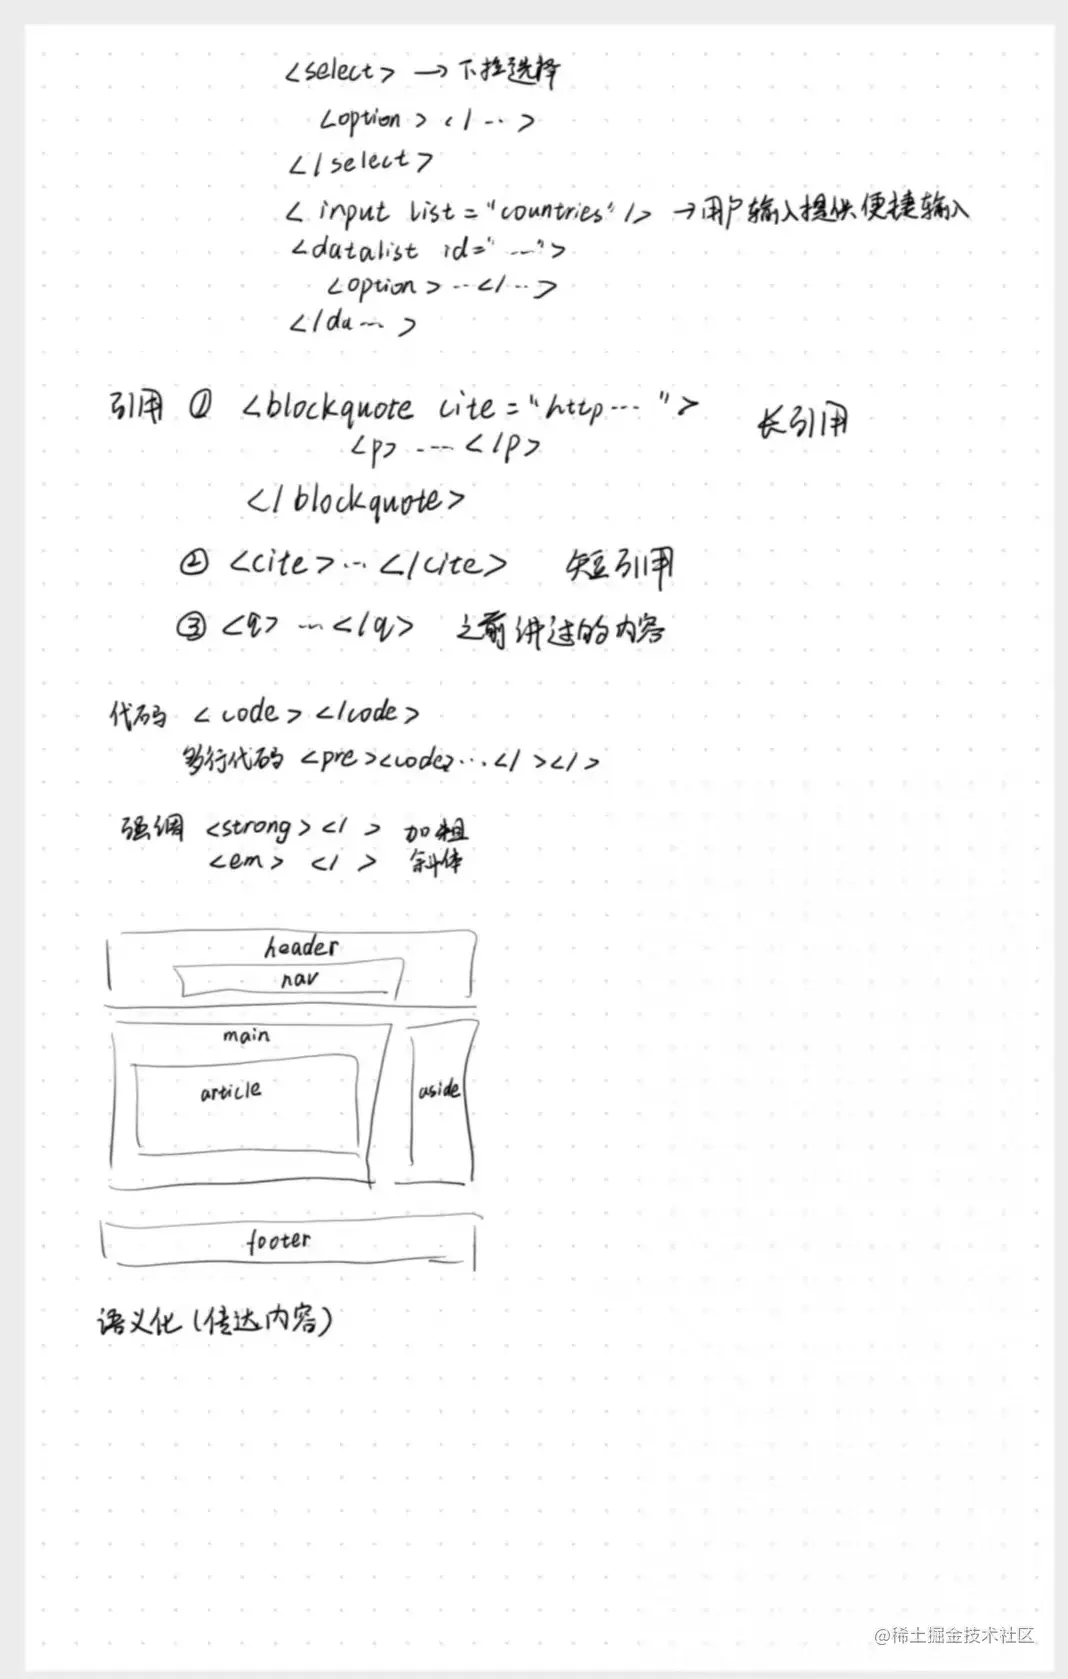 <select> → 下拉选择
<option> </ ... >
</select>
< input list="countries" /> → 用户输入提供便捷输入
<datalist id=" ... ">
<option> ... </ ... >
</da ... >
引用 ① <blockquote cite="http ... "> 长引用
<p> ... </p>
</blockquote>
② <cite> ... </cite> 短引用
③ <q> ... </q> 之前讲过的内容
代码 <code></code>
多行代码 <pre><code> ... </ ></ >
强调 <strong></ > 加粗
<em> </ > 斜体
header
nav
main
article
aside
footer
语义化(传达内容)
@稀土掘金技术社区